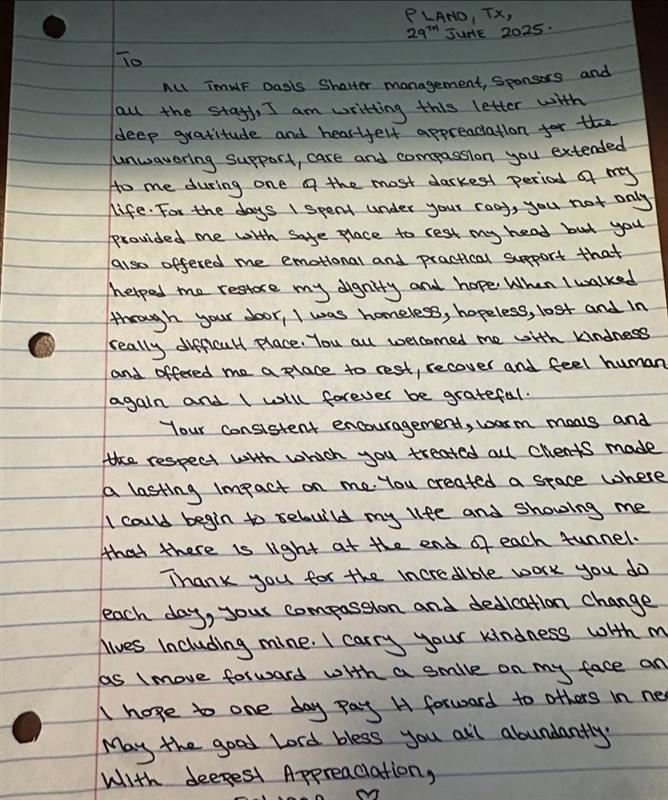 PLANO, TX,
29TH JUNE 2025.
To
All TMWF Oasis Shalter management, Sponsors and
all the staff, I am writting this letter with
deep gratitude and heartfelt appreaciation for the
unwavering support, care and compassion you extended
to me during one of the most darkest period of my
life. For the days I spent under your roof, you not only
provided me with safe place to rest my head but you
also offered me emotional and practical support that
helped me restore my dignity and hope. When I walked
through your door, I was homeless, hopeless, lost and in
really difficult place. You all welcomed me with kindness
and offered me a place to rest, recover and feel human
again and I will forever be grateful.
Your consistent encouragement, warm meals and
the respect with which you treated all clients made
a lasting impact on me. You created a space where
I could begin to rebuild my life and showing me
that there is light at the end of each tunnel.
Thank you for the incredible work you do
each day, your compassion and dedication change
lives including mine. I carry your kindness with m
as I move forward with a smile on my face an
I hope to one day pay it forward to others in nee
May the good Lord bless you all abundantly.
With deepest Appreaciation,